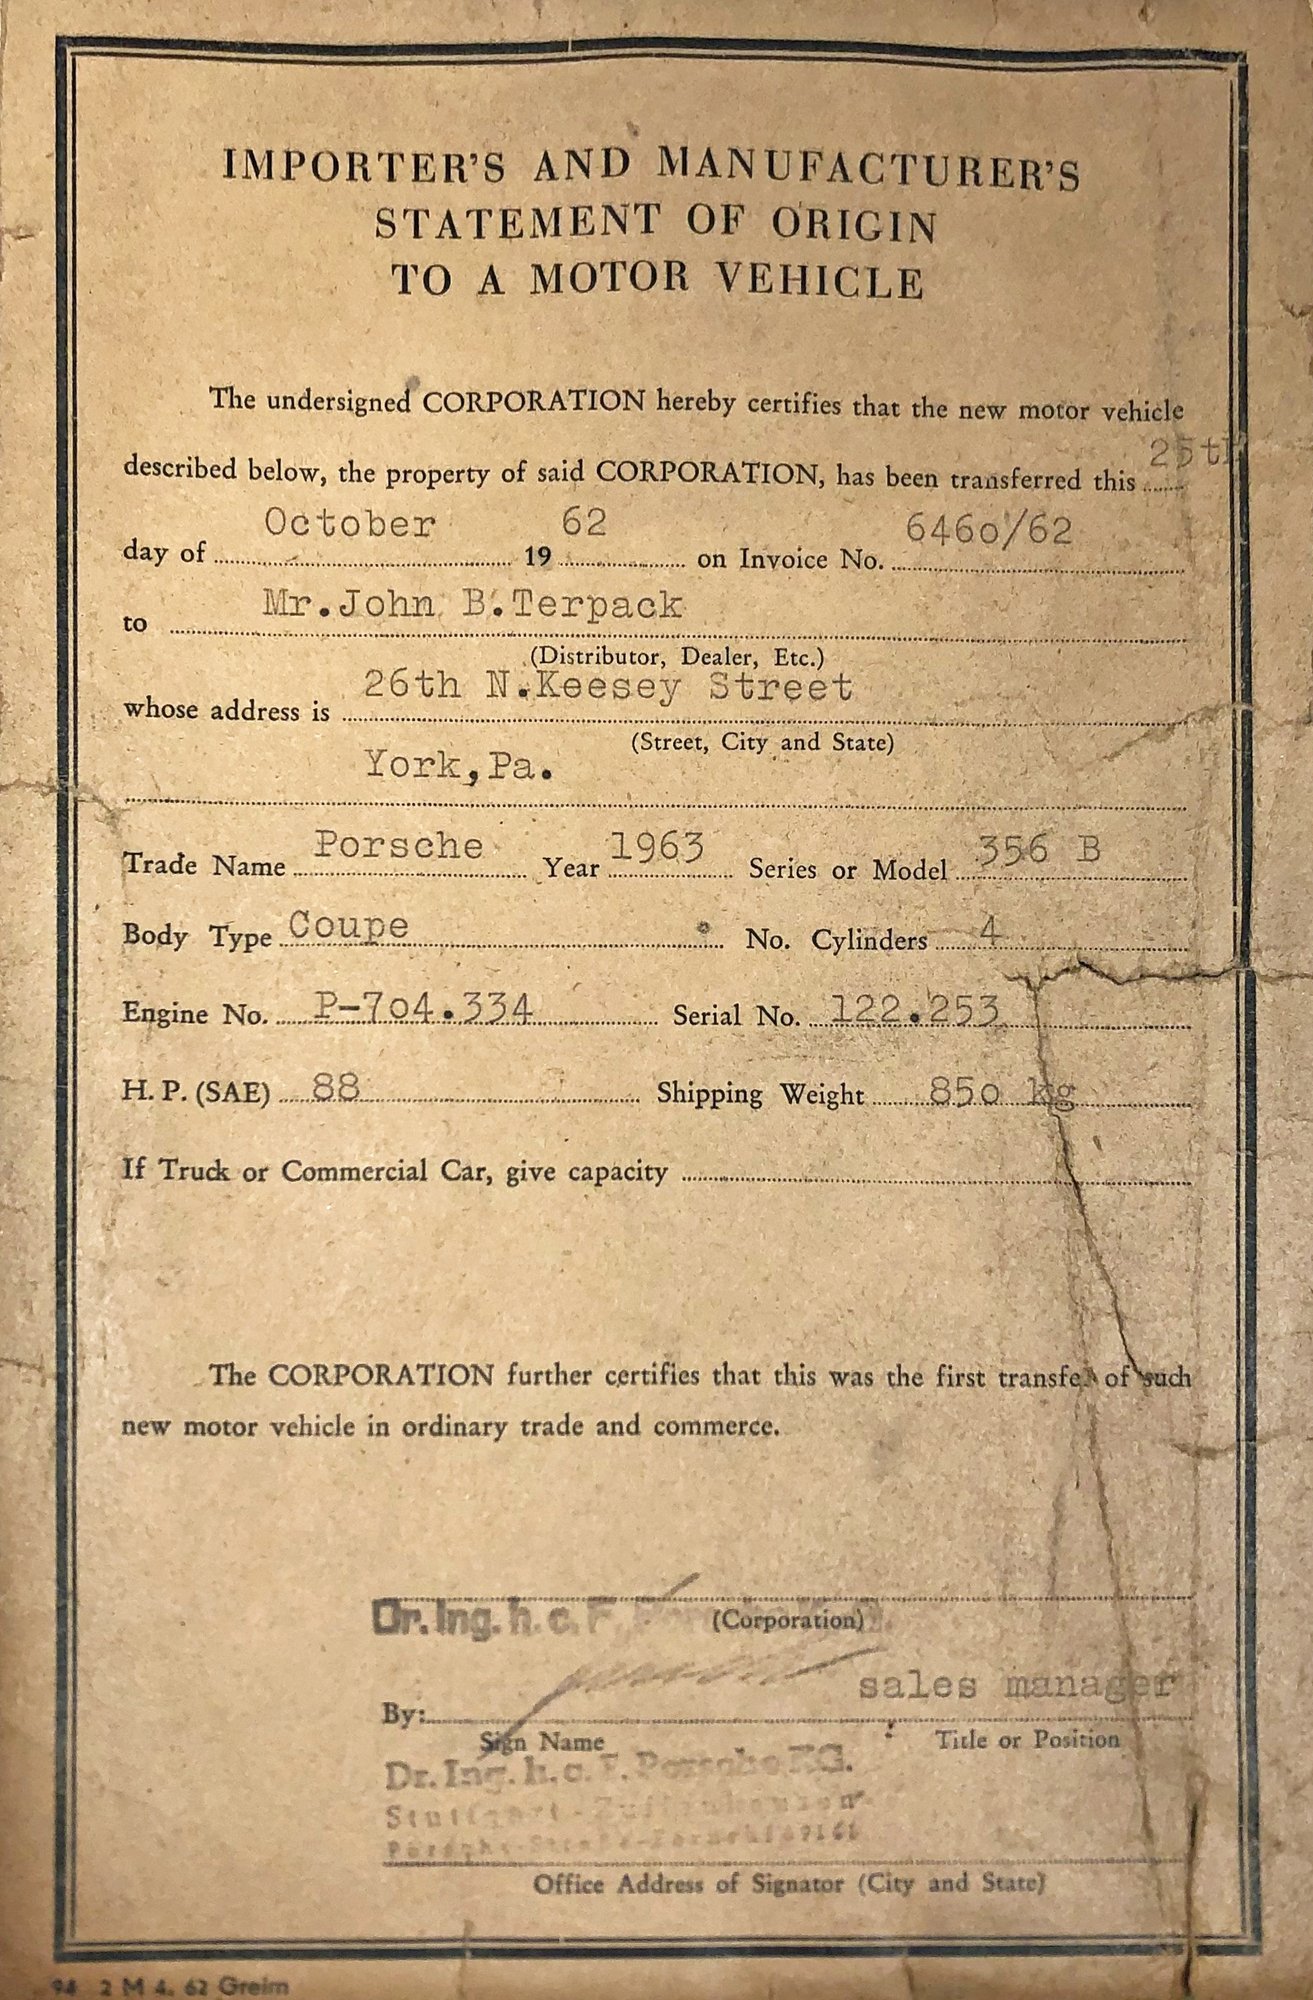 IMPORTER'S AND MANUFACTURER'S
STATEMENT OF ORIGIN
TO A MOTOR VEHICLE
The undersigned CORPORATION hereby certifies that the new motor vehicle
described below, the property of said CORPORATION, has been transferred this 25th
day of October 19 62 on Invoice No. 646o/62
to Mr.John B.Terpack
(Distributor, Dealer, Etc.)
whose address is 26th N.Keesey Street
(Street, City and State)
York,Pa.
Trade Name Porsche Year 1963 Series or Model 356 B
Body Type Coupe No. Cylinders 4
Engine No. P-7o4.334 Serial No. 122.253
H. P. (SAE) 88 Shipping Weight 85o kg
If Truck or Commercial Car, give capacity
The CORPORATION further certifies that this was the first transfer of such
new motor vehicle in ordinary trade and commerce.
Dr. Ing. h. c. F.
(Corporation)
By: sales manager
Sign Name Title or Position
Dr. Ing. h. c. F. Porsche KG.
Stuttgart - Zuffenhausen
Office Address of Signator (City and State)
94 2 M 4. 62 Greim